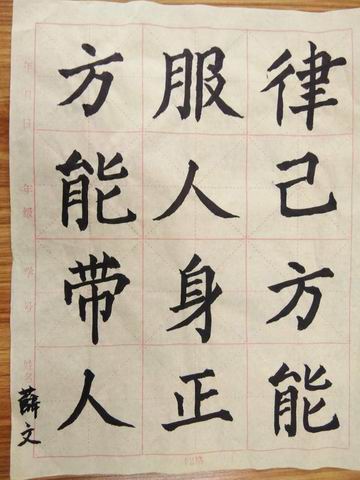 律己方能
服人身正
方能带人
薛文